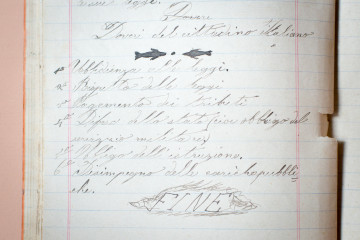 oggi.
Dovere
Doveri del cittadino italiano
1º Ubbidienza alle leggi.
2º Rispetto delle leggi
3º Pagamento dei tributi
4º Difesa dello stato (cioè obbligo del
servizio militare)
5º Obbligo dell'istruzione.
6º Disimpegno delle cariche pubbli-
che.
FINE